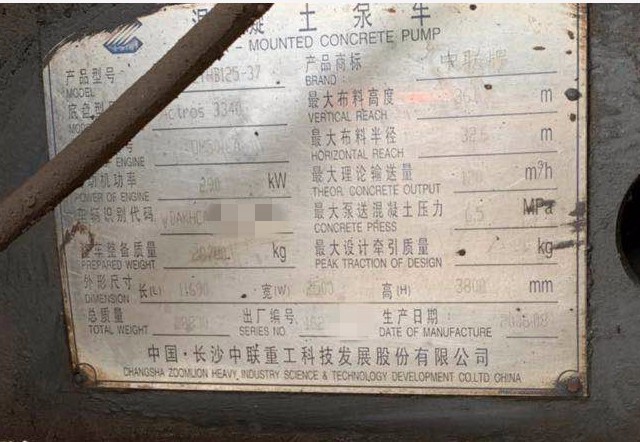 凝土泵车
- MOUNTED CONCRETE PUMP
产品型号 THB125-37
MODEL
产品商标 中联牌
BRAND:
底盘型 ctros 3340
最大布料高度 m
VERTICAL REACH
最大布料半径 32.6 m
HORIZONTAL REACH
号
ENGINE
动机功率 290 kW
POWER OF ENGINE
最大理论输送量 m³/h
THEOR. CONCRETE OUTPUT
识别代码
最大泵送混凝土压力 6.5 MPa
CONCRETE PRESS
车整备质量 kg
PREPARED WEIGHT
最大设计牵引质量 kg
PEAK TRACTION OF DESIGN
外形尺寸 长(L) 11690 宽(W) 2500 高(H) 3800 mm
DIMENSION
总质量
TOTAL WEIGHT
出厂编号
SERIES NO.
生产日期:
DATE OF MANUFACTURE
中国·长沙中联重工科技发展股份有限公司
CHANGSHA ZOOMLION HEAVY INDUSTRY SCIENCE & TECHNOLOGY DEVELOPMENT CO.LTD CHINA